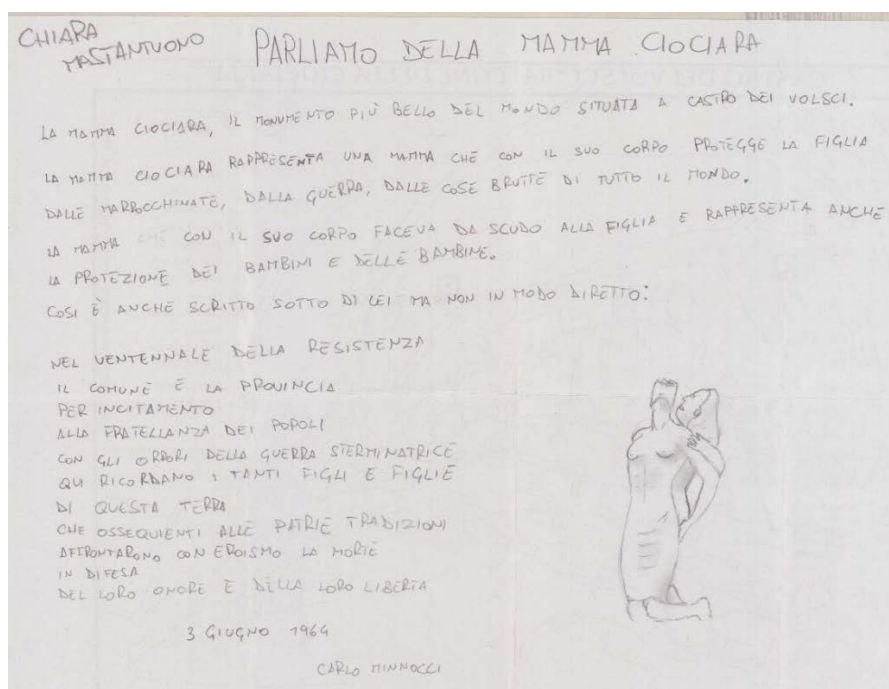 CHIARA
MASTANTUONO
PARLIAMO DELLA MAMMA CIOCIARA
LA MAMMA CIOCIARA, IL MONUMENTO PIÙ BELLO DEL MONDO SITUATA A CASTRO DEI VOLSCI.
LA MAMMA CIOCIARA RAPPRESENTA UNA MAMMA CHE CON IL SUO CORPO PROTEGGE LA FIGLIA
DALLE MARROCCHINATE, DALLA GUERRA, DALLE COSE BRUTTE DI TUTTO IL MONDO.
LA MAMMA CHE CON IL SUO CORPO FACEVA DA SCUDO ALLA FIGLIA E RAPPRESENTA ANCHE
LA PROTEZIONE DEI BAMBINI E DELLE BAMBINE.
COSI È ANCHE SCRITTO SOTTO DI LEI MA NON IN MODO DIRETTO:
NEL VENTENNALE DELLA RESISTENZA
IL COMUNE E LA PROVINCIA
PER INCITAMENTO
ALLA FRATELLANZA DEI POPOLI
CON GLI ORRORI DELLA GUERRA STERMINATRICE
QUI RICORDANO I TANTI FIGLI E FIGLIE
DI QUESTA TERRA
CHE OSSEQUIENTI ALLE PATRIE TRADIZIONI
AFFRONTARONO CON EROISMO LA MORTE
IN DIFESA
DEL LORO ONORE E DELLA LORO LIBERTA
3 GIUGNO 1964
CARLO MINNOCCI